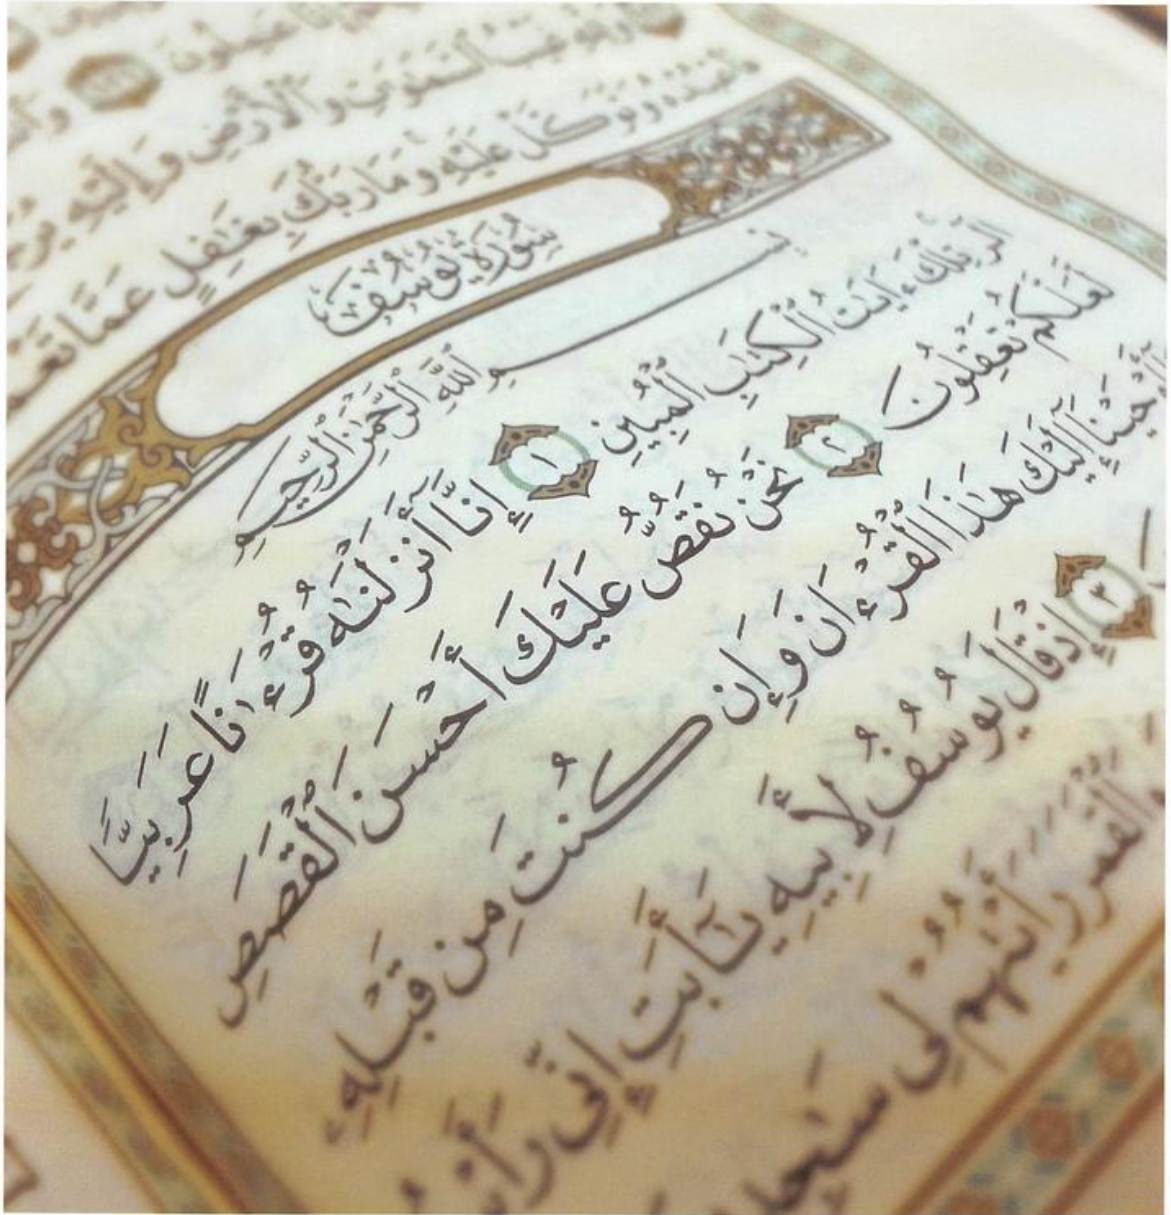 وَلِلَّهِ غَيْبُ ٱلسَّمَٰوَٰتِ وَٱلْأَرْضِ وَإِلَيْهِ
فَٱعْبُدْهُ وَتَوَكَّلْ عَلَيْهِ وَمَا رَبُّكَ بِغَٰفِلٍ عَمَّا
سُورَةُ يُوسُفَ
بِسْمِ ٱللَّهِ ٱلرَّحْمَٰنِ ٱلرَّحِيمِ
الٓر تِلْكَ ءَايَٰتُ ٱلْكِتَٰبِ ٱلْمُبِينِ ١ إِنَّآ أَنزَلْنَٰهُ قُرْءَٰنًا عَرَبِيًّا
لَعَلَّكُمْ تَعْقِلُونَ ٢ نَحْنُ نَقُصُّ عَلَيْكَ أَحْسَنَ ٱلْقَصَصِ
إِلَيْكَ هَٰذَا ٱلْقُرْءَانَ وَإِن كُنتَ مِن قَبْلِهِۦ
٣ إِذْ قَالَ يُوسُفُ لِأَبِيهِ يَٰٓأَبَتِ إِنِّى
وَٱلْقَمَرَ رَأَيْتُهُمْ لِى